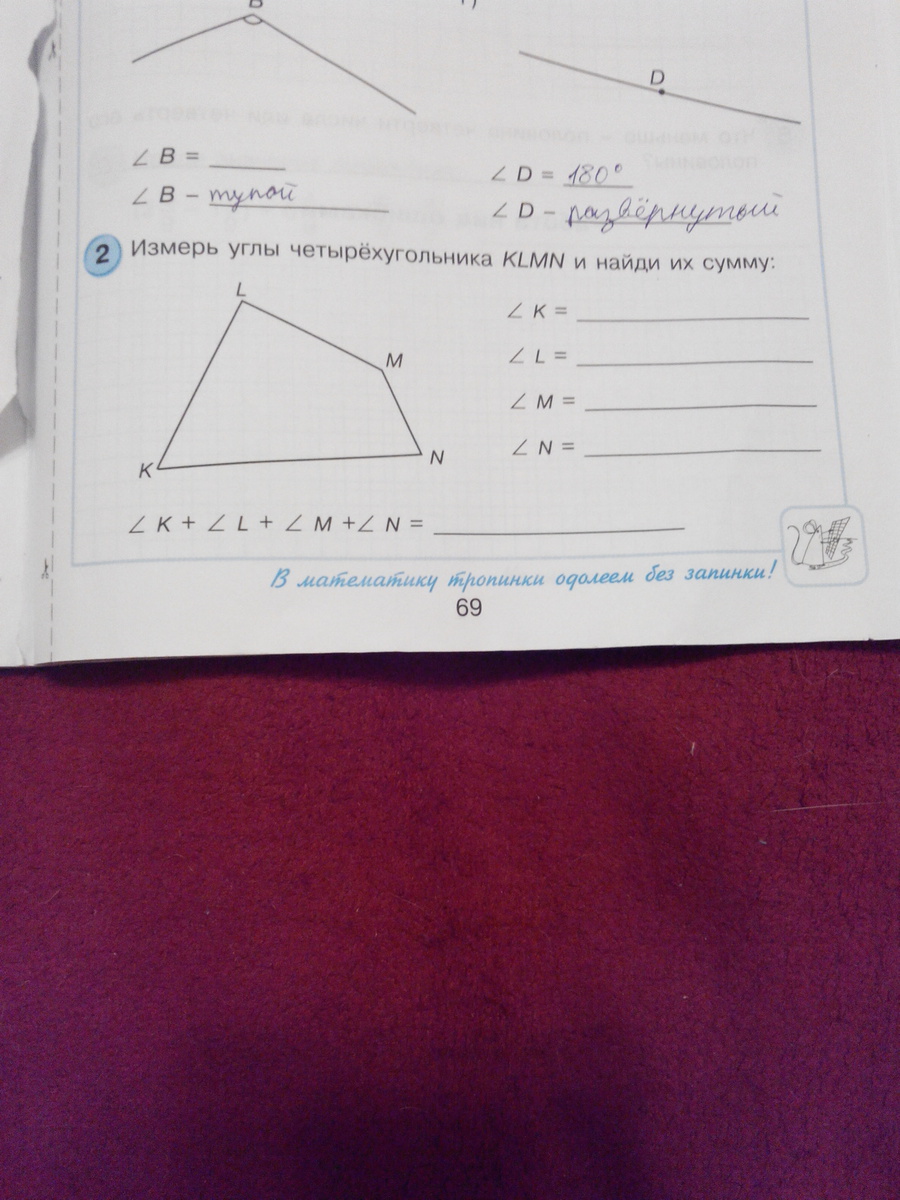 B
∠ B = ______
∠ B – тупой
D
∠ D = 180°
∠ D – развёрнутый
2 Измерь углы четырёхугольника KLMN и найди их сумму:
L
M
K
N
∠ K = ______
∠ L = ______
∠ M = ______
∠ N = ______
∠ K + ∠ L + ∠ M + ∠ N = ______
В математику тропинки одолеем без запинки!
69